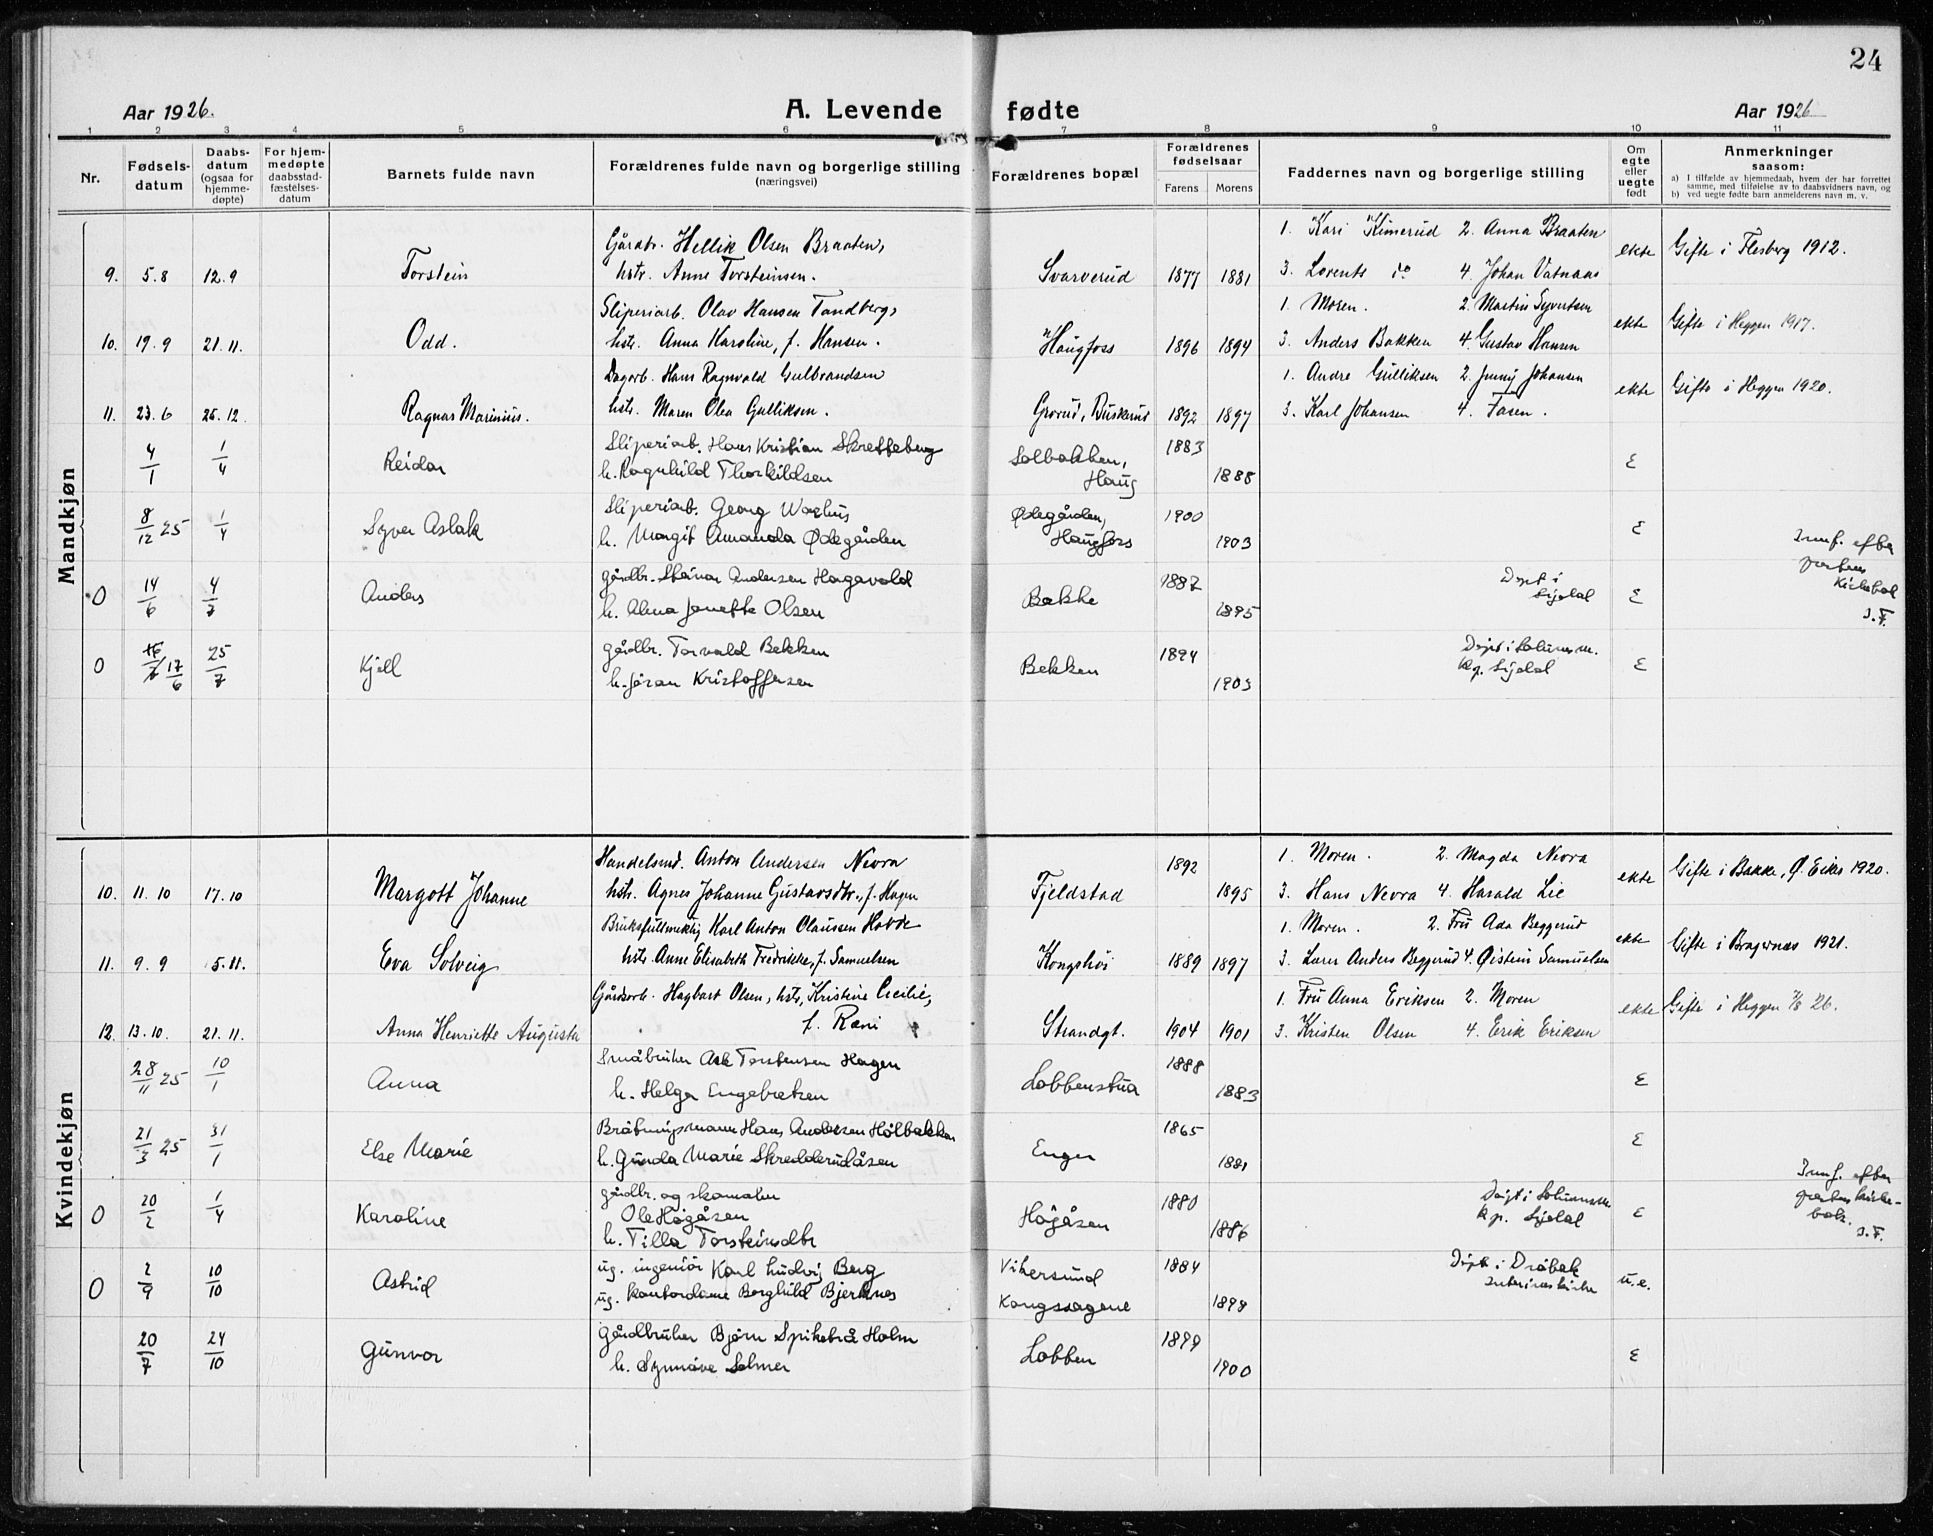 24
Aar 1926.
A. Levende fødte
Aar 1926
1 2 3 4 5 6 7 8 9 10 11
Nr.
Fødsels-
datum
Daabs-
datum
(ogsaa for
hjemme-
døpte)
For hjem-
medøpte
daabsstad-
fæstelses-
datum
Barnets fulde navn
Forældrenes fulde navn og borgerlige stilling
(næringsvei)
Forældrenes bopæl
Forældrenes
fødselsaar
Farens Morens
Faddernes navn og borgerlige stilling
Om
egte
eller
uegte
født
Anmerkninger
saasom:
a) I tilfælde av hjemmedaab, hvem der har forrettet
samme, med tilføielse av to daabsvidners navn, og
b) ved uegte fødte barn anmelderens navn m. v.
Mandkjøn
Gårdbr. Hellik Olsen Braaten, 1. Kari Kimerud 2. Anna Braaten
9. 5.8 12.9 Torstein hstr. Anne Torsteinsen. Svarverud 1877 1881 3. Lorents do 4. Johan Vatnaas ekte Gifte i Flesberg 1912.
Sliperiarb. Olav Hansen Tandberg, 1. Moren. 2. Martin Syvertsen
10. 19.9 21.11. Odd. hstr. Anna Karoline, f. Hansen. Haugfoss 1896 1894 3. Anders Bakken 4. Gustav Hansen ekte Gifte i Heggen 1917.
Dagarb. Hans Ragnvald Gulbrandsen 1. Andre Gulliksen 2. Jenny Johansen
11. 23.6 26.12. Ragnar Marinius. hstr. Maren Olea Gulliksen. Grorud, Buskerud 1892 1897 3. Karl Johansen 4. Faren. ekte Gifte i Heggen 1920.
4/1 1/4 Reidar Sliperiarb. Hans Kristian Skretteberg Solbakken, 1883 E
h. Ragnhild Thorkildsen Haug 1888
8/12 25 1/4 Syver Aslak Sliperiarb. Georg Ødegården, 1900 E
h. Margit Amanda Ødegården Haugfoss 1903
0 14/6 4/7 Anders gårdbr. Steinar Andersen Hagavold Bakke 1887 Døpt i Sigdal E Innf. efter
h. Alma Jonette Olsen 1895 prestens Kirkebok
S.F.
0 17/6 25/7 Kjell gårdbr. Torvald Bekken Bekken 1894 Døpt i Solumsm. E
h. Jøran Kristoffersen 1903 kp. Sigdal
Kvindekjøn
Handelsmd. Anton Andersen Nevra 1892 1. Moren. 2. Magda Nevra
10. 11.10 17.10 Margott Johanne hstr. Agnes Johanne Gustavsdtr., f. Hagen Fjeldstad 1895 3. Hans Nevra 4. Harald Lie ekte Gifte i Bakke, Ø. Eiker 1920.
Bruksfullmektig Karl Anton Olaussen Hovde 1. Moren. 2. Fru Ada Beggerud
11. 9.9 15.11. Eva Solveig hstr. Anne Elisabeth Fredrikke, f. Samuelsen Kongshøi 1889 1897 3. Lærer Anders Beggerud 4. Øistein Samuelsen ekte Gifte i Bragernæs 1921.
Gårdsarb. Hagbart Olsen, hstr, Kristine Cecilie, 1. Fru Anna Eriksen 2. Moren
12. 13.10. 21.11. Anna Henriette Augusta f. Rani Strandgt. 1904 1901 3. Kristen Olsen 4. Erik Eriksen ekte Gifte i Heggen 7/8 26.
28/11 25 10/1 Anna Småbruker Ask Torstensen Hagen Lobbenstua 1888 E
h. Helga Engebretsen 1883
21/3 25 31/1 Else Marie Hans Andersen Holbakken Enger 1865 E
h. Gunda Marie Skredderudåsen 1881
0 20/2 1/4 Karoline gårdbr. og skomaker Høgåsen 1880 Døpt i Solumsm. E Innf. efter
Ole Høgåsen kp. Sigdal prestens kirke-
h. Tilla Torsteinsdtr 1886 bok.
S.F.
0 2/9 10/10 Astrid ug. ingeniør Karl Ludvig Berg Vikersund 1884 Døpt i Drøbak u.e.
ug. kontordame Borghild Bjerknes Kongssagene 1898
20/7 24/10 Gunvor Gårdbruker Bjørn Spikebrå Holm Lobben 1899 E
h. Synnøve Solmer 1900